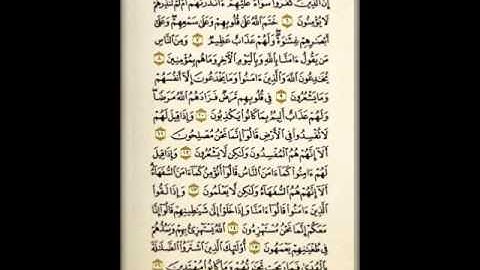 إِنَّ ٱلَّذِينَ كَفَرُواْ سَوَآءٌ عَلَيْهِمْ ءَأَنذَرْتَهُمْ أَمْ لَمْ تُنذِرْهُمْ
لَا يُؤْمِنُونَ خَتَمَ ٱللَّهُ عَلَىٰ قُلُوبِهِمْ وَعَلَىٰ سَمْعِهِمْ وَعَلَىٰٓ
أَبْصَٰرِهِمْ غِشَٰوَةٌ وَلَهُمْ عَذَابٌ عَظِيمٌ وَمِنَ ٱلنَّاسِ
مَن يَقُولُ ءَامَنَّا بِٱللَّهِ وَبِٱلْيَوْمِ ٱلْءَاخِرِ وَمَا هُم بِمُؤْمِنِينَ
يُخَٰدِعُونَ ٱللَّهَ وَٱلَّذِينَ ءَامَنُواْ وَمَا يَخْدَعُونَ إِلَّآ أَنفُسَهُمْ
وَمَا يَشْعُرُونَ فِى قُلُوبِهِم مَّرَضٌ فَزَادَهُمُ ٱللَّهُ مَرَضًا
وَلَهُمْ عَذَابٌ أَلِيمٌۢ بِمَا كَانُواْ يَكْذِبُونَ وَإِذَا قِيلَ لَهُمْ
لَا تُفْسِدُواْ فِى ٱلْأَرْضِ قَالُوٓاْ إِنَّمَا نَحْنُ مُصْلِحُونَ
أَلَآ إِنَّهُمْ هُمُ ٱلْمُفْسِدُونَ وَلَٰكِن لَّا يَشْعُرُونَ وَإِذَا قِيلَ
لَهُمْ ءَامِنُواْ كَمَآ ءَامَنَ ٱلنَّاسُ قَالُوٓاْ أَنُؤْمِنُ كَمَآ ءَامَنَ ٱلسُّفَهَآءُ
أَلَآ إِنَّهُمْ هُمُ ٱلسُّفَهَآءُ وَلَٰكِن لَّا يَعْلَمُونَ وَإِذَا لَقُواْ
ٱلَّذِينَ ءَامَنُواْ قَالُوٓاْ ءَامَنَّا وَإِذَا خَلَوْاْ إِلَىٰ شَيَٰطِينِهِمْ قَالُوٓاْ إِنَّا
مَعَكُمْ إِنَّمَا نَحْنُ مُسْتَهْزِءُونَ ٱللَّهُ يَسْتَهْزِئُ بِهِمْ وَيَمُدُّهُمْ
فِى طُغْيَٰنِهِمْ يَعْمَهُونَ أُوْلَٰٓئِكَ ٱلَّذِينَ ٱشْتَرَوُاْ ٱلضَّلَٰلَةَ
بِٱلْهُدَىٰ فَمَا رَبِحَت تِّجَٰرَتُهُمْ وَمَا كَانُواْ مُهْتَدِينَ